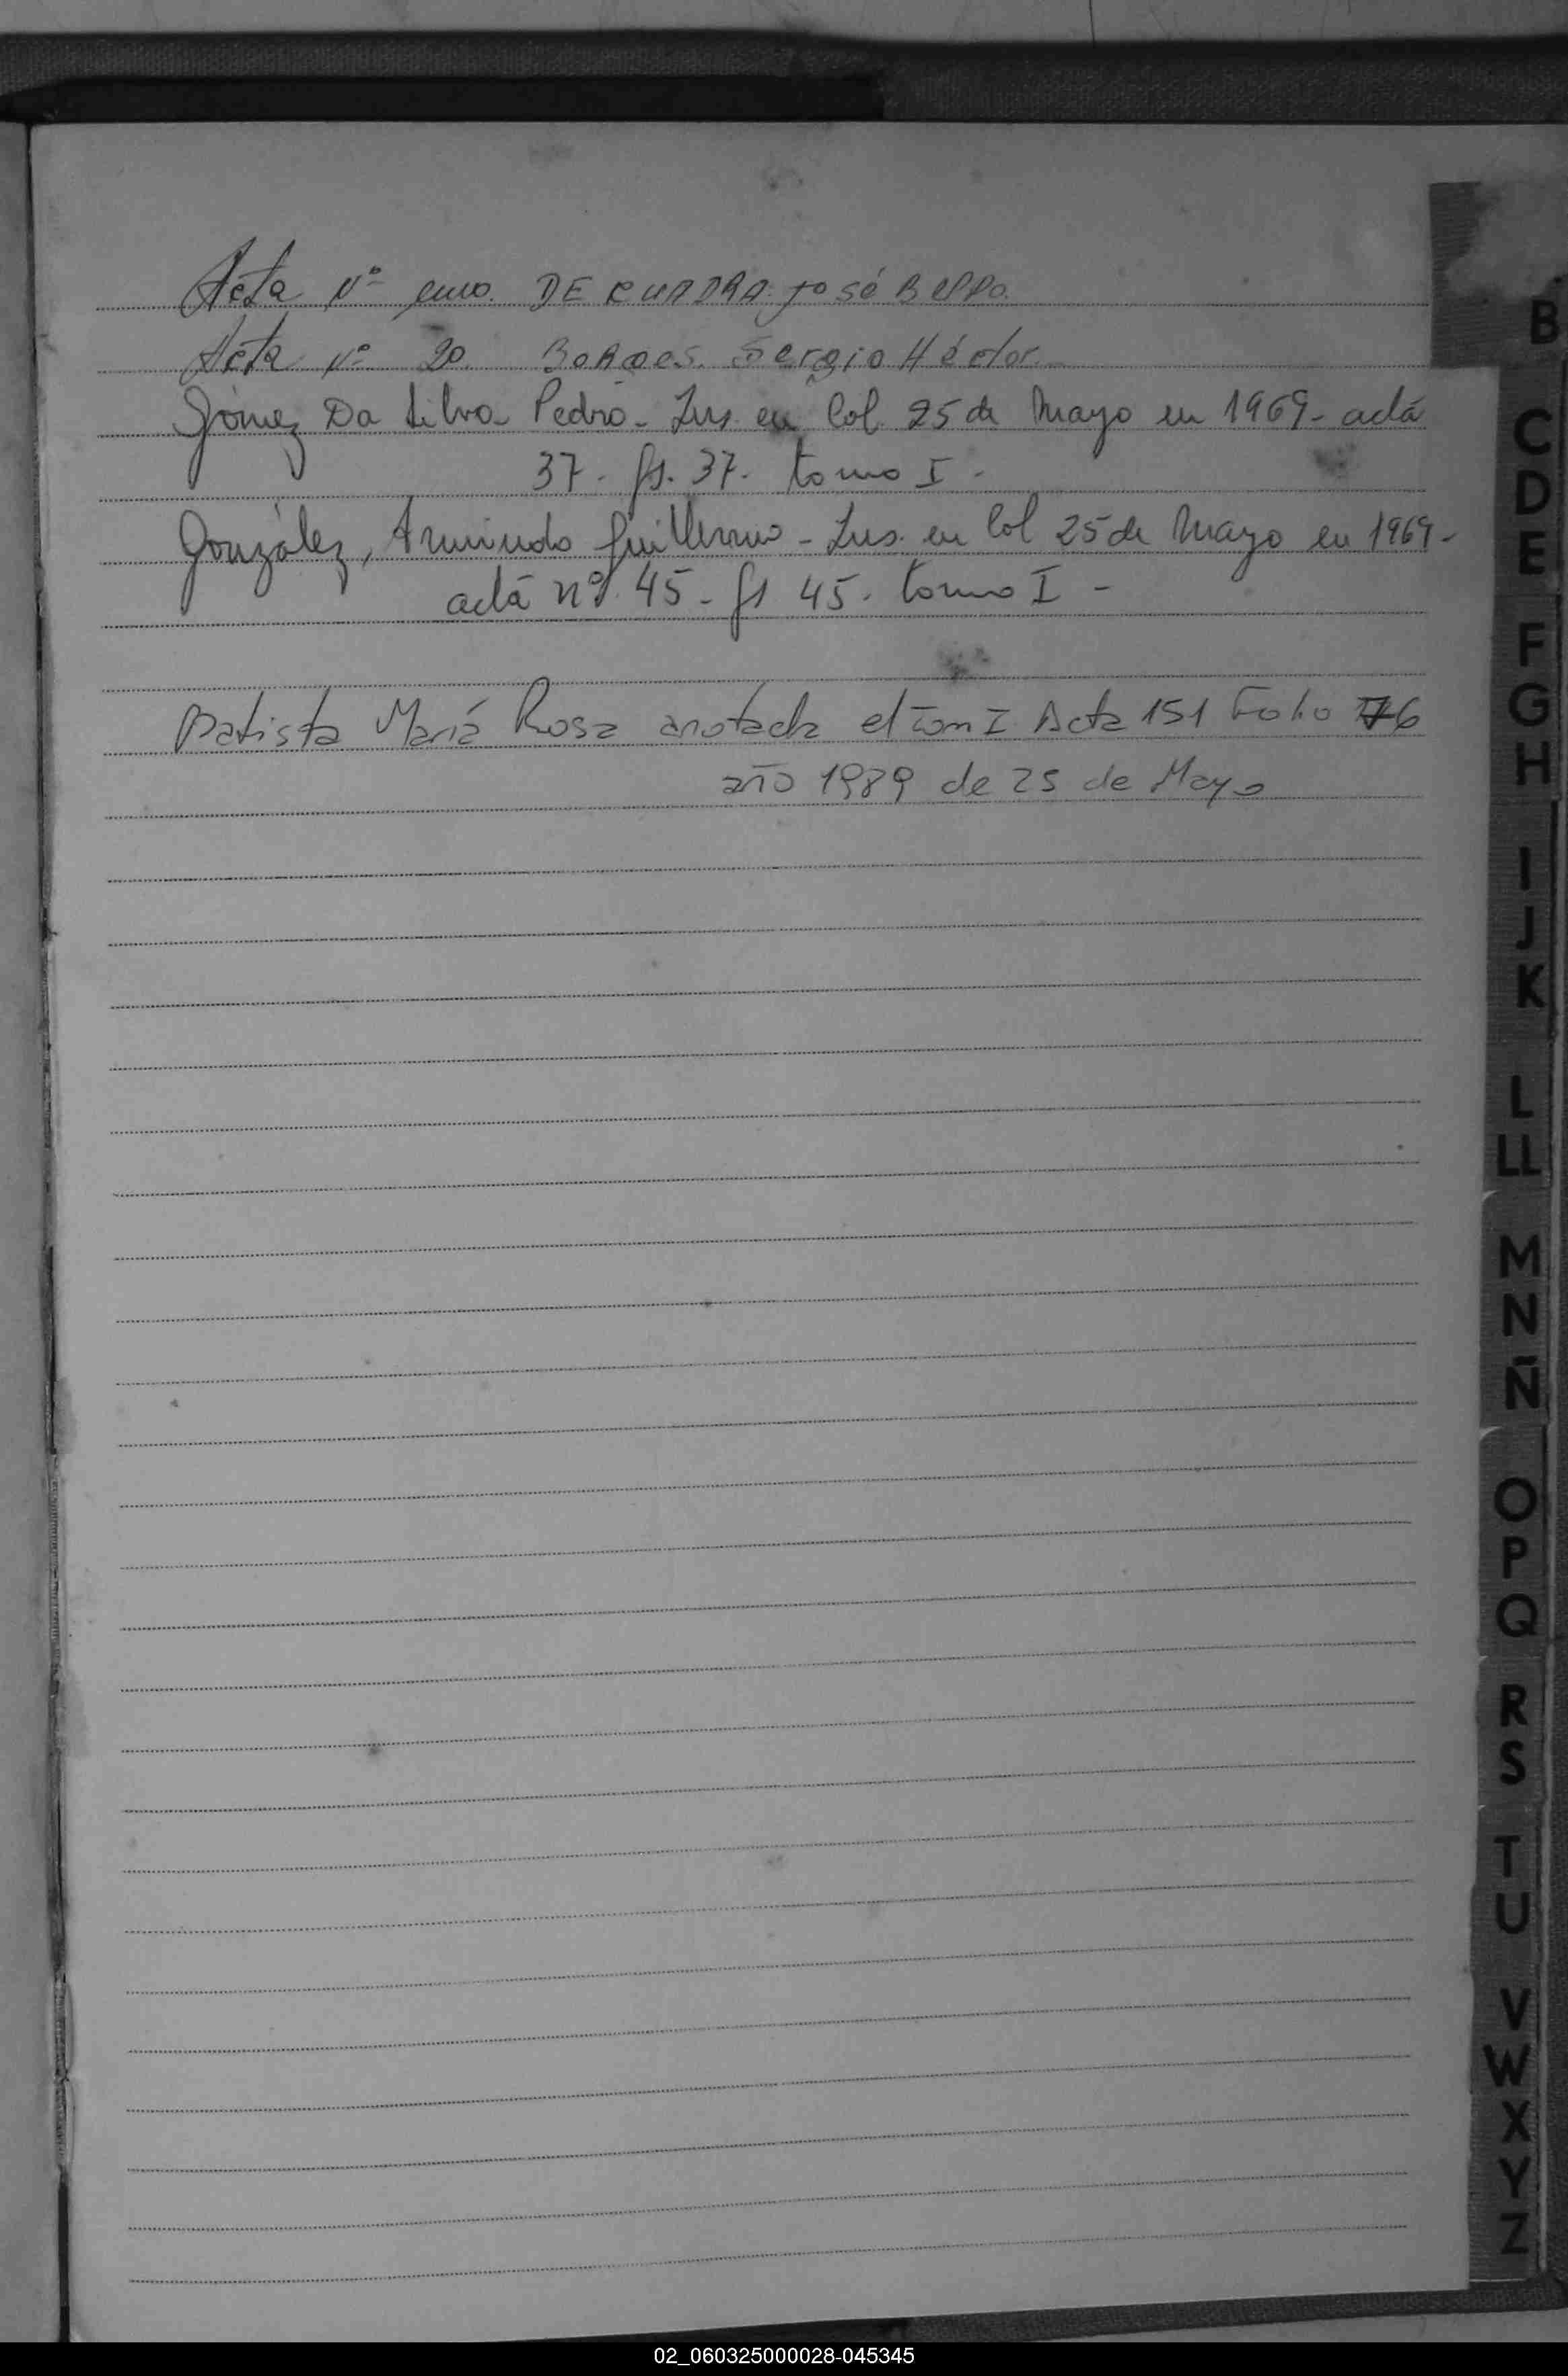 Acta Nº uno. DE CUADRA José
Acta Nº 20. Borges. Sergio Héctor.
Gómez Da Silva Pedro - Ins. en Col. 25 de Mayo en 1969 - actá
37 - fs. 37 - tomo I -
González, Armindo Guillermo - Ins. en Col 25 de Mayo en 1969 -
actá nº 45 - fs 45 - tomo I -
Batista María Rosa anotada el tom I Acta 151 Folio 76
año 1989 de 25 de Mayo
B
C
D
E
F
G
H
I
J
K
L
LL
M
N
Ñ
O
P
Q
R
S
T
U
V
W
X
Y
Z
02_060325000028-045345